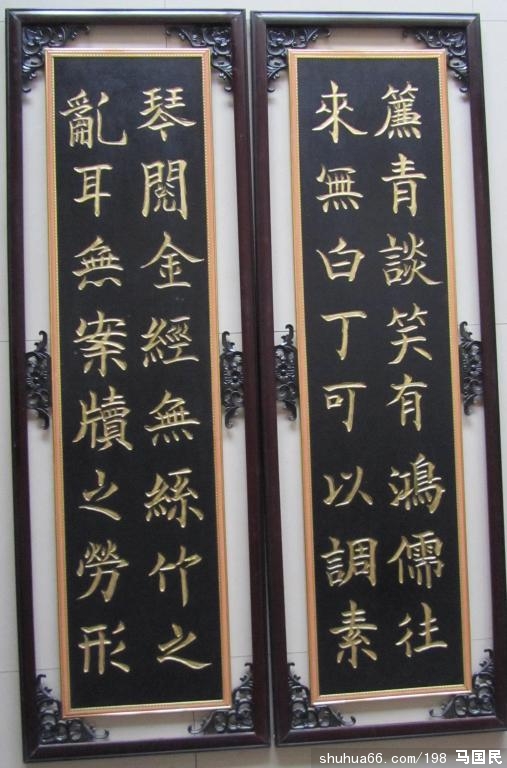 簾青談笑有鴻儒往
來無白丁可以調素
琴閱金經無絲竹之
亂耳無案牘之勞形
shuhua66.com/198 马国民